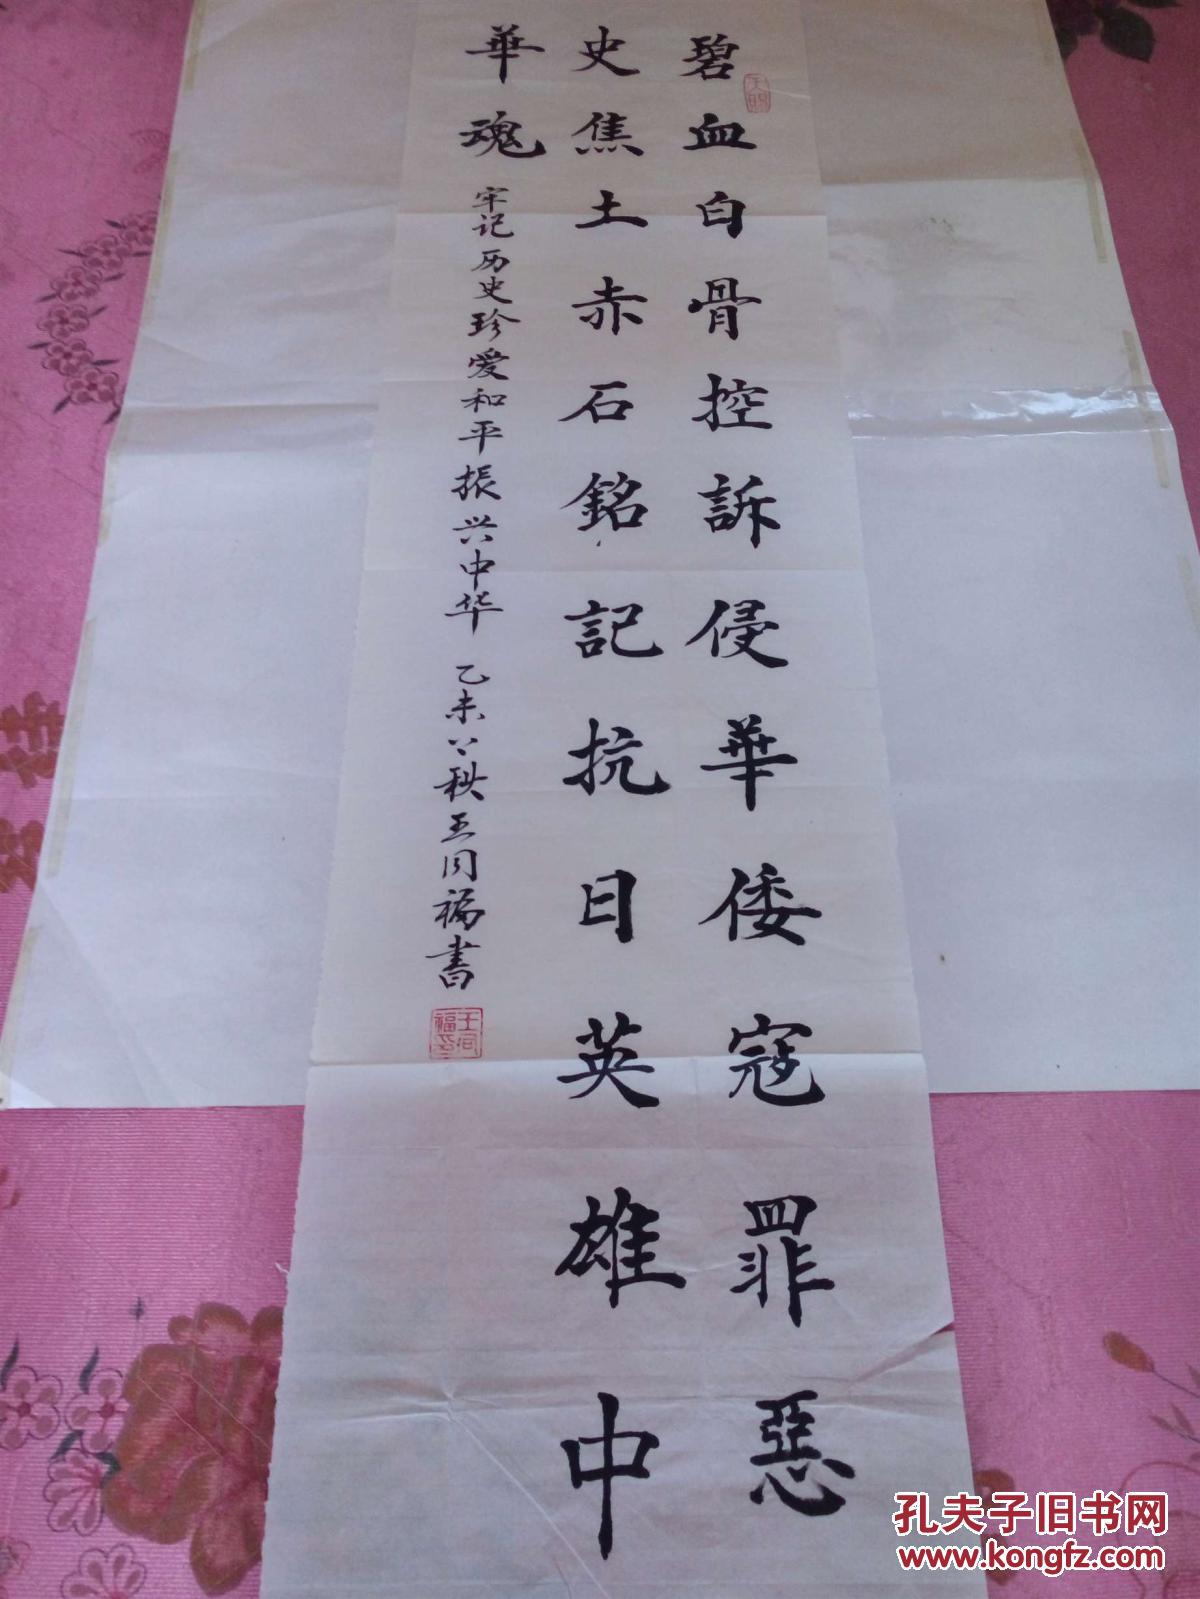 碧血白骨控訴侵華倭寇罪惡
史焦土赤石銘記抗日英雄中
華魂
牢记历史珍爱和平振兴中华 乙未公秋王同福書
王同福印
孔夫子旧书网
www.kongfz.com